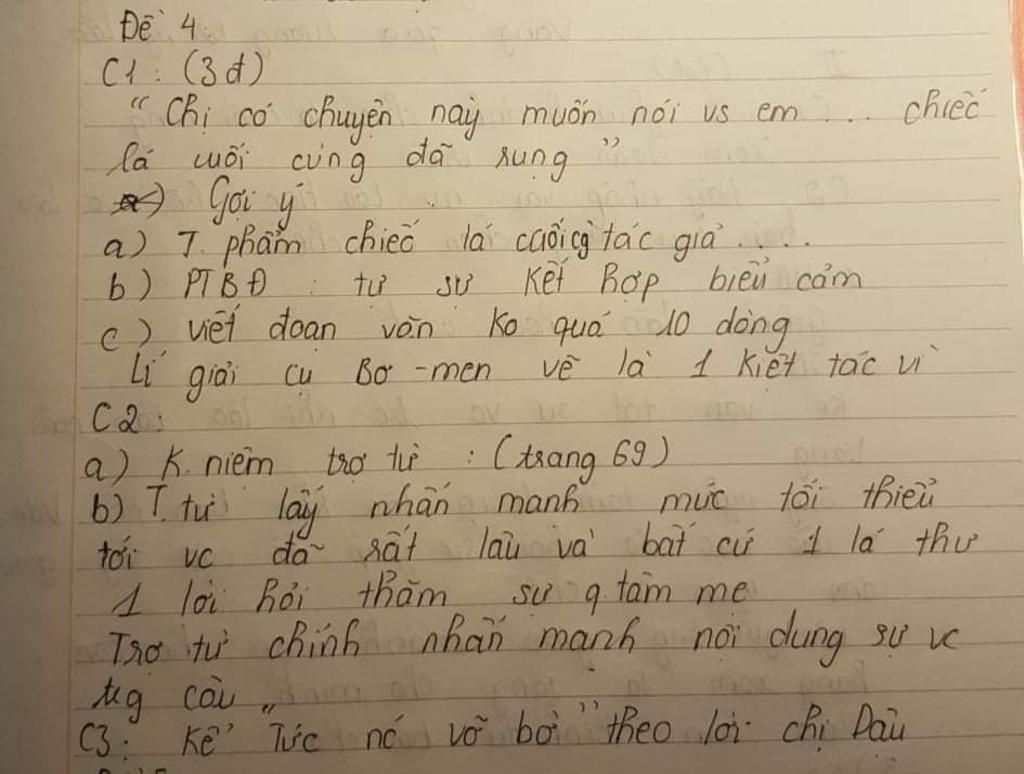 Đề 4:
C1: (3đ)
"Chị có chuyện này muốn nói vs em ... chiếc
lá cuối cùng đã rụng"
Gợi ý
a) T. phẩm chiếc lá cuối cg tác giả ....
b) PTBĐ : tự sự kết hợp biểu cảm
c) viết đoạn văn ko quá 10 dòng
Lí giải cụ Bơ-men vẽ là 1 kiệt tác vì
C2:
a) K. niệm trợ từ : (trang 69)
b) T. từ lấy nhấn mạnh mức tối thiểu
tới vc đã rất lâu và bất cứ 1 lá thư
1 lời hỏi thăm sự q. tâm mẹ
Trợ từ chính nhấn mạnh nội dung sự vc
trg câu
C3: Kể "Tức nó vỡ bờ" theo lời chị Dậu